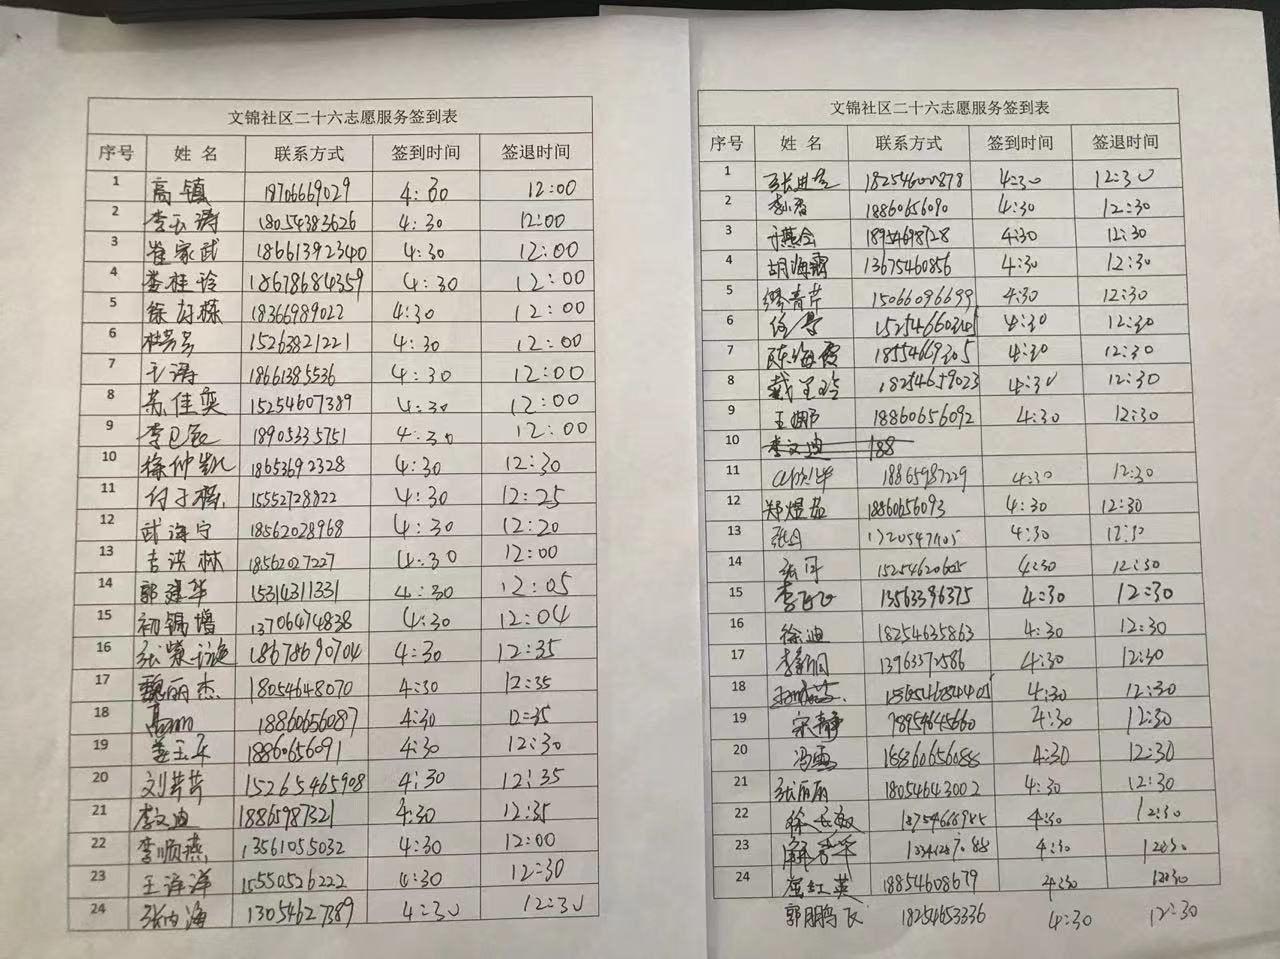 文锦社区二十六志愿服务签到表
序号 姓名 联系方式 签到时间 签退时间
1 高镇 18706669029 4:30 12:00
2 李玉涛 18054383626 4:30 12:00
3 崔家武 18661392340 4:30 12:00
4 娄桂玲 18678684359 4:30 12:00
5 徐 栋 18366989022 4:30 12:00
6 15263821221 4:30 12:00
7 王涛 18661385536 4:30 12:00
8 苏佳奕 15254607389 4:30 12:00
9 李 18905335751 4:30 12:00
10 徐仲凯 18653692328 4:30 12:30
11 付子栋 15552728822 4:30 12:25
12 武海宁 18562028968 4:30 12:20
13 吉洪林 18562027227 4:30 12:00
14 郭建华 15314311331 4:30 12:05
15 初锡增 13706474838 4:30 12:04
16 张 18678690704 4:30 12:35
17 魏丽杰 18054648070 4:30 12:35
18 18860656087 4:30 12:35
19 姜玉 18860656091 4:30 12:30
20 刘芹芹 15265465908 4:30 12:35
21 李文迪 18865987321 4:30 12:35
22 李顺燕 13561055032 4:30 12:00
23 王洋洋 15550526222 4:30 12:30
24 张 海 13054627389 4:30 12:30
文锦社区二十六志愿服务签到表
序号 姓名 联系方式 签到时间 签退时间
1 张 18254600878 4:30 12:30
2 李 18860656090 4:30 12:30
3 于燕 18954698728 4:30 12:30
4 胡海霞 13675460856 4:30 12:30
5 缪青芹 15066096699 4:30 12:30
6 4:30 12:30
7 陈海霞 18554669305 4:30 12:30
8 戴 玲 18254659023 4:30 12:30
9 王娜 18860656092 4:30 12:30
10 李文迪 188
11 18865987229 4:30 12:30
12 郑煜茹 18860656093 4:30 12:30
13 4:30 12:30
14 15254620605 4:30 12:30
15 李 13563396375 4:30 12:30
16 徐迪 18254635863 4:30 12:30
17 李 13963372586 4:30 12:30
18 4:30 12:30
19 宋静 18954645660 4:30 12:30
20 冯 18860656088 4:30 12:30
21 张丽丽 18054643002 4:30 12:30
22 徐 4:30 12:30
23 解 华 4:30 12:30
24 崔红英 18854608679 4:30 12:30
郭鹏飞 18254653336 4:30 12:30